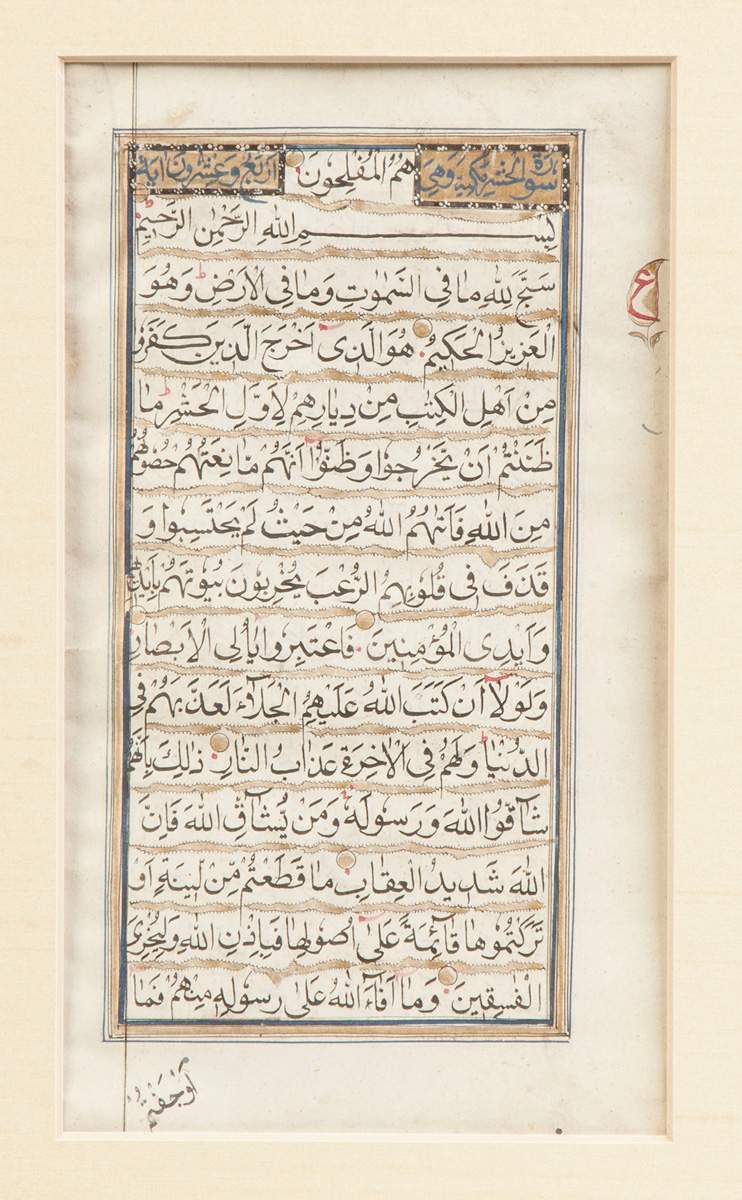 سورة الحشر مكية وهي هُمُ الْمُفْلِحُونَ اربع وعشرون اية
بِسْمِ اللهِ الرَّحْمٰنِ الرَّحِيْمِ
سَبَّحَ لِلّٰهِ مَا فِي السَّمٰوٰتِ وَمَا فِي الْاَرْضِ ط وَهُوَ
ع
الْعَزِيْزُ الْحَكِيْمُ هُوَ الَّذِيْ اَخْرَجَ الَّذِيْنَ كَفَرُوْا
مِنْ اَهْلِ الْكِتٰبِ مِنْ دِيَارِهِمْ لِاَوَّلِ الْحَشْرِ ط مَا
ظَنَنْتُمْ اَنْ يَّخْرُجُوْا وَظَنُّوْٓا اَنَّهُمْ مَّانِعَتُهُمْ حُصُوْنُهُمْ
مِنَ اللهِ فَاَتٰىهُمُ اللهُ مِنْ حَيْثُ لَمْ يَحْتَسِبُوْا وَ
قَذَفَ فِيْ قُلُوْبِهِمُ الرُّعْبَ يُخْرِبُوْنَ بُيُوْتَهُمْ بِاَيْدِيْهِمْ
وَاَيْدِي الْمُؤْمِنِيْنَ فَاعْتَبِرُوْا يٰٓاُولِي الْاَبْصَارِ
وَلَوْلَآ اَنْ كَتَبَ اللهُ عَلَيْهِمُ الْجَلَآءَ لَعَذَّبَهُمْ فِي
الدُّنْيَا ط وَلَهُمْ فِي الْاٰخِرَةِ عَذَابُ النَّارِ ذٰلِكَ بِاَنَّهُمْ
شَآقُّوا اللهَ وَرَسُوْلَهٗ وَمَنْ يُّشَآقِّ اللهَ فَاِنَّ
اللهَ شَدِيْدُ الْعِقَابِ مَا قَطَعْتُمْ مِّنْ لِّيْنَةٍ اَوْ
تَرَكْتُمُوْهَا قَآئِمَةً عَلٰٓى اُصُوْلِهَا فَبِاِذْنِ اللهِ وَلِيُخْزِيَ
الْفٰسِقِيْنَ وَمَآ اَفَآءَ اللهُ عَلٰى رَسُوْلِهٖ مِنْهُمْ فَمَآ
اَوْجَفْتُمْ